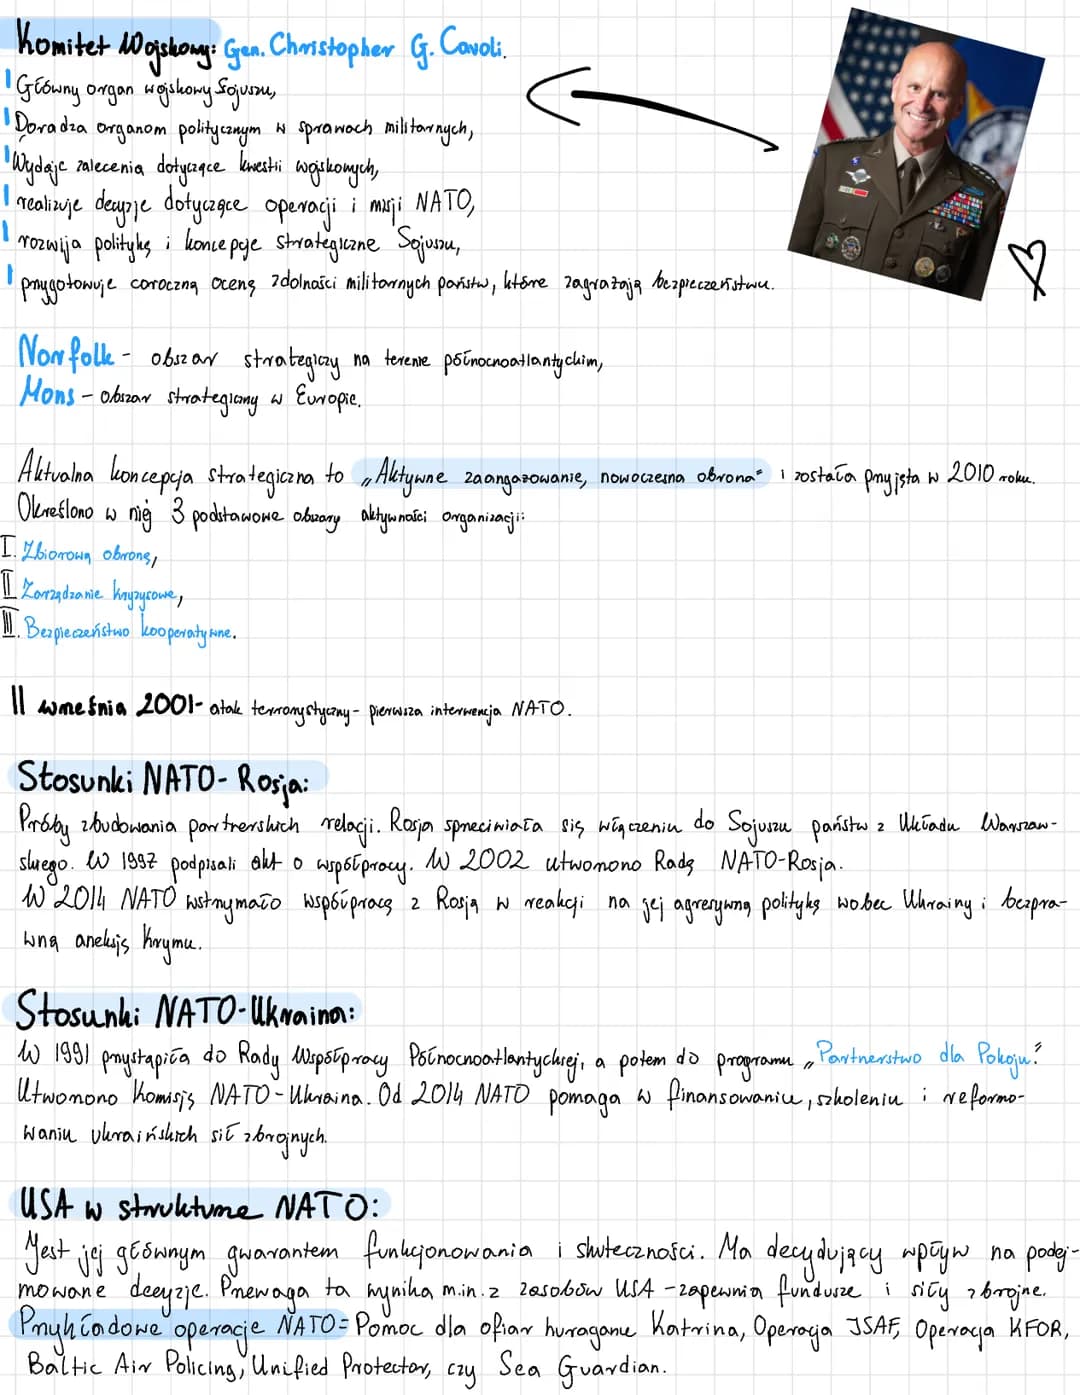 Komitet Wojskowy: Gen. Christopher G. Cavoli.
Główny organ wojskowy Sojuszu,
Doradza organom politycznym w sprawach militarnych,
Wydaje zalecenia dotyczące kwestii wojskowych,
realizuje decyzje dotyczące operacji i misji NATO,
rozwija politykę i koncepcje strategiczne Sojuszu,
przygotowuje coroczną ocenę zdolności militarnych państw, które zagrażają bezpieczeństwu.
Norfolk - obszar strategiczy na terenie północnoatlantyckim,
Mons - obszar strategiczny w Europie.
Aktualna koncepcja strategiczna to „Aktywne zaangażowanie, nowoczesna obrona" i została przyjęta w 2010 roku.
Określono w niej 3 podstawowe obszary aktywności organizacji:
I. Zbiorową obronę,
II. Zarządzanie kryzysowe,
III. Bezpieczeństwo kooperatywne.
11 września 2001- atak terrorystyczny- pierwsza interwencja NATO.
Stosunki NATO- Rosja:
Próby zbudowania partnerskich relacji. Rosja sprzeciwiała się włączeniu do Sojuszu państw z Układu Warszaw-
skiego. W 1997 podpisali akt o współpracy. W 2002 utworzono Radę NATO-Rosja.
W 2014 NATO wstrzymało współpracę z Rosją w reakcji na jej agresywną politykę wobec Ukrainy i bezpra-
wną aneksję Krymu.
Stosunki NATO-Ukraina:
W 1991 przystąpiła do Rady Współpracy Północnoatlantyckiej, a potem do programu „Partnerstwo dla Pokoju".
Utworzono Komisję NATO-Ukraina. Od 2014 NATO pomaga w finansowaniu, szkoleniu i reformo-
waniu ukraińskich sił zbrojnych.
USA w strukturze NATO:
Jest jej głównym gwarantem funkcjonowania i skuteczności. Ma decydujący wpływ na podej-
mowane decyzje. Przewaga ta wynika m.in. z zasobów USA -zapewnia fundusze i siły zbrojne.
Przykładowe operacje NATO= Pomoc dla ofiar huraganu Katrina, Operacja ISAF, Operacja KFOR,
Baltic Air Policing, Unified Protector, czy Sea Guardian.